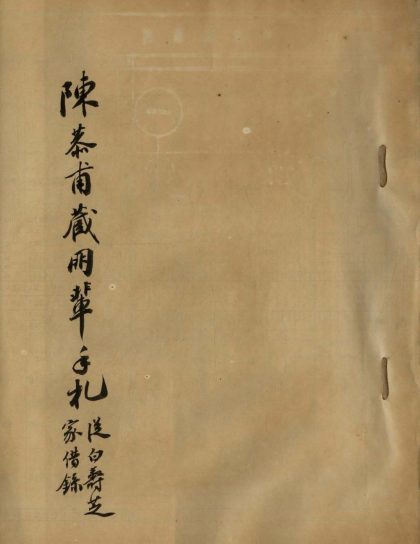 陳恭甫藏朋輩手札
從白壽芝
家借錄